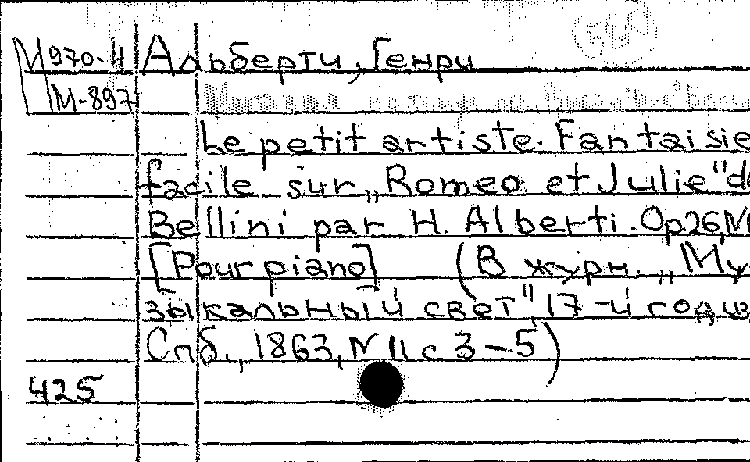 М970-11 Альберти, Генри
М-897
Le petit artiste. Fantaisie
facile sur „Romeo et Julie" de
Bellini par H. Alberti. Op26,N
[Pour piano] (В журн. „Му-
зыкальный свет", 17-й год из
Спб., 1863, N 11 с 3-5)
425